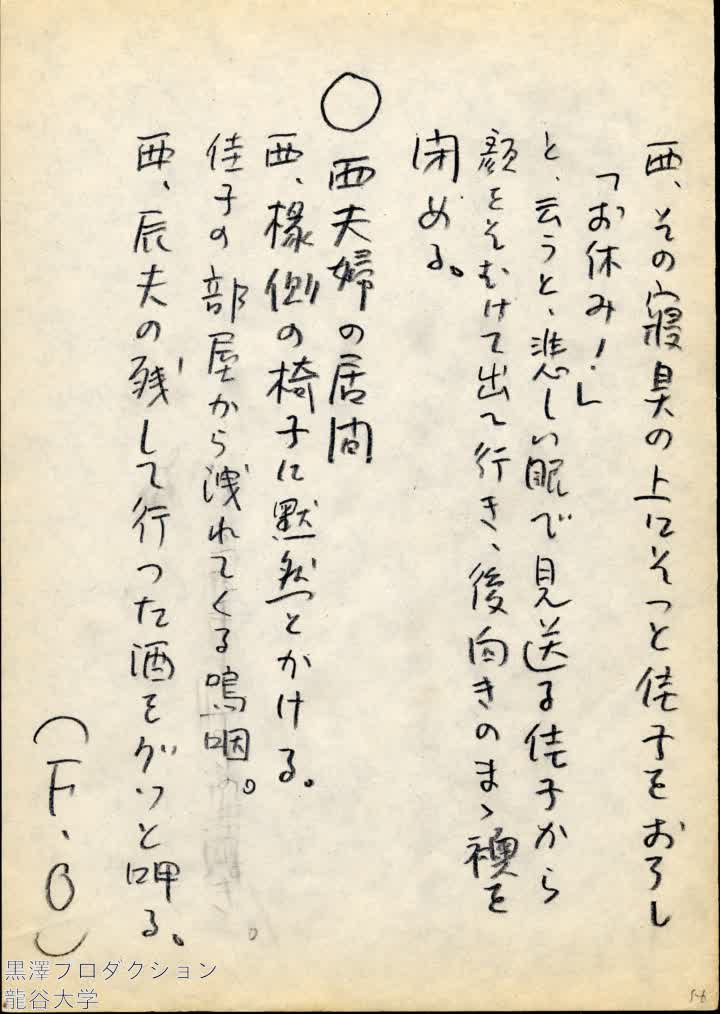 西、その寝具の上にそっと佳子をおろし
「お休み！」
と、云うと、悲しい眼で見送る佳子から
顔をそむけて出て行き、後向きのまゝ襖を
閉める。
○西夫婦の居間
西、椽側の椅子に黙然とかける。
佳子の部屋から洩れてくる嗚咽。
西、辰夫の残して行った酒をグッと呷る。
（F・O）
黒澤プロダクション
龍谷大学